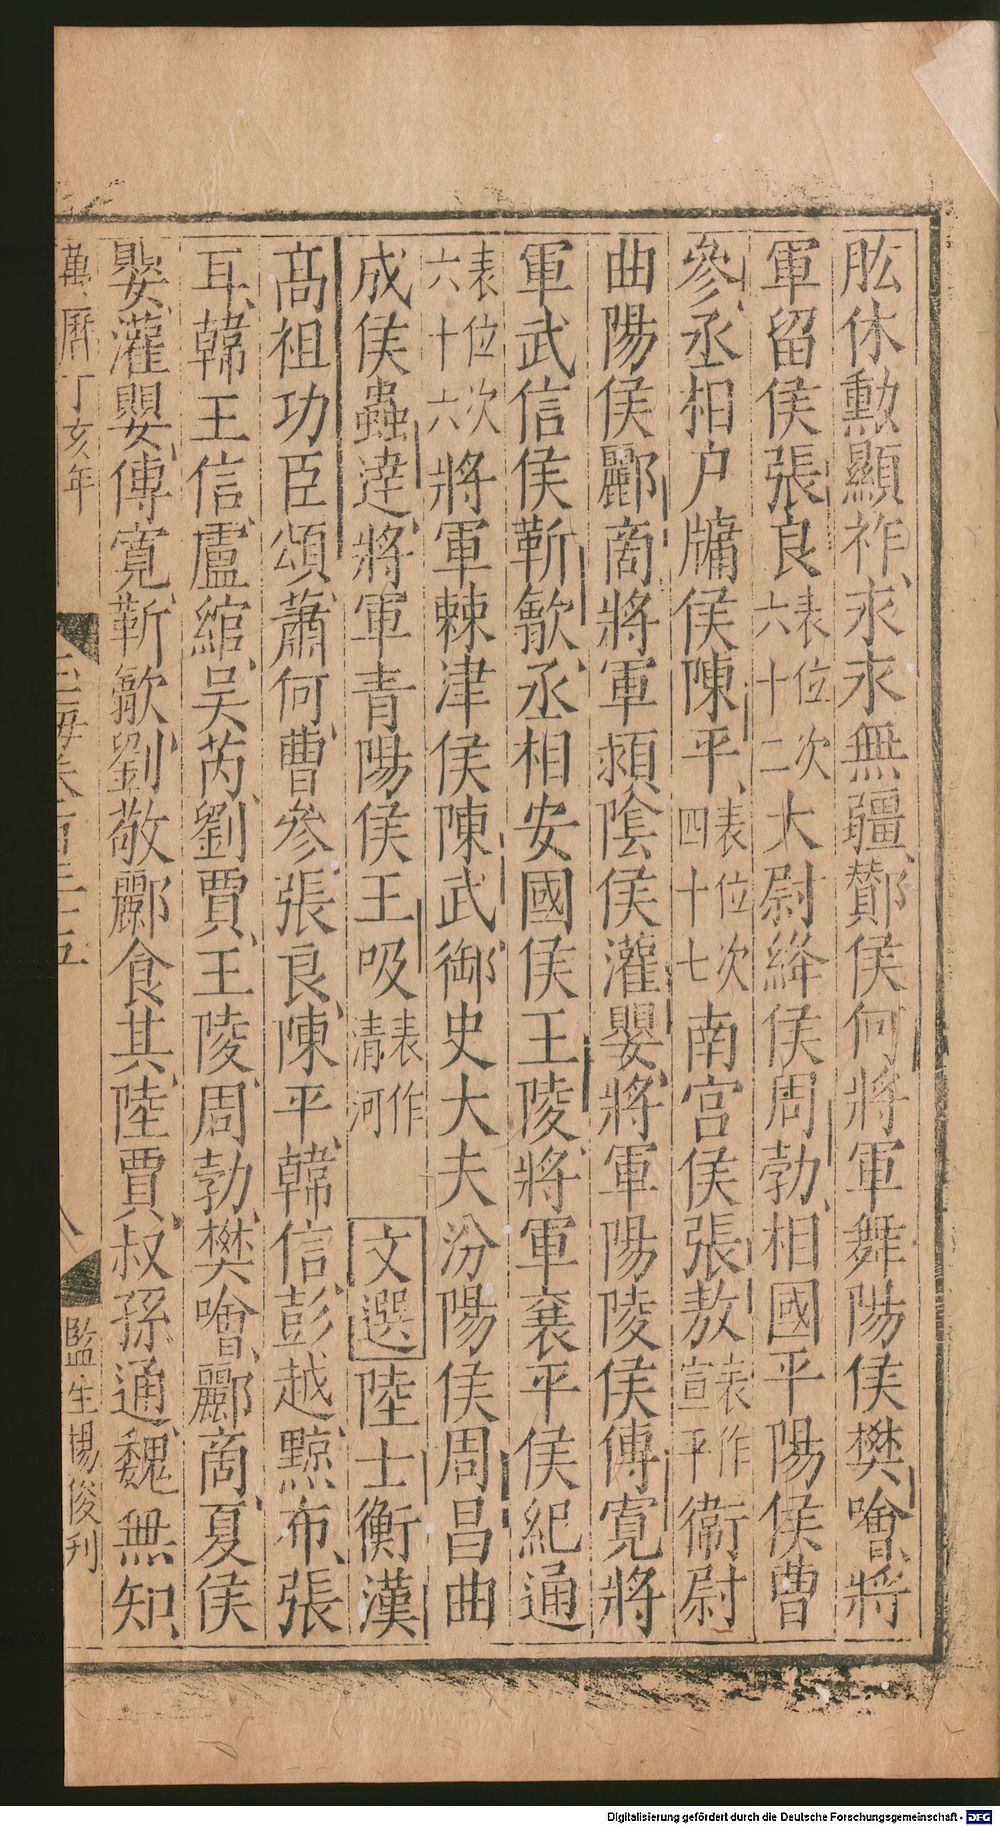 肱休勲顯祚永永無疆酇侯何將軍舞陽侯樊噲將
軍留侯張良表位次六十二大尉絳侯周勃相國平陽侯曹
參丞相户牖侯陳平表位次四十七南宮侯張敖表作宣平衛尉
曲陽侯酈商將軍潁陰侯灌嬰將軍陽陵侯傅寛將
軍武信侯靳歙丞相安國侯王陵將軍襄平侯紀通
表位次六十六將軍棘津侯陳武御史大夫汾陽侯周昌曲
成侯蟲達將軍青陽侯王吸表作清河 文選陸士衡漢
高祖功臣頌蕭何曹參張良陳平韓信彭越黥布張
耳韓王信盧綰吴芮劉賈王陵周勃樊噲酈商夏侯
嬰灌嬰傅寛靳歙劉敬酈食其陸賈叔孫通魏無知
萬曆丁亥年 玉海卷百三十五 八 監生楊俊刊
Digitalisierung gefördert durch die Deutsche Forschungsgemeinschaft - DFG